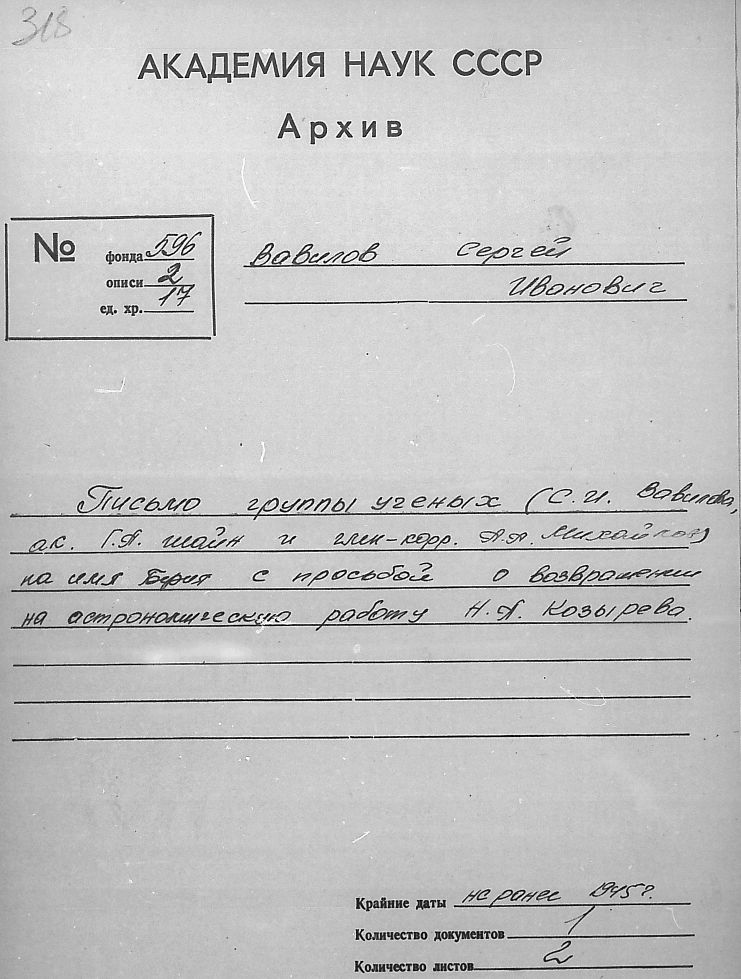 318
АКАДЕМИЯ НАУК СССР
Архив
№ фонда 596
описи 2
ед. хр. 17
Вавилов Сергей
Иванович
Письмо группы ученых (С.И. Вавилова,
ак. Г.А. Шайн и член-корр. А.А. Михайлов)
на имя Берия с просьбой о возвращении
на астрономическую работу Н.А. Козырева.
Крайние даты не ранее 1945 г.
Количество документов 1
Количество листов 2